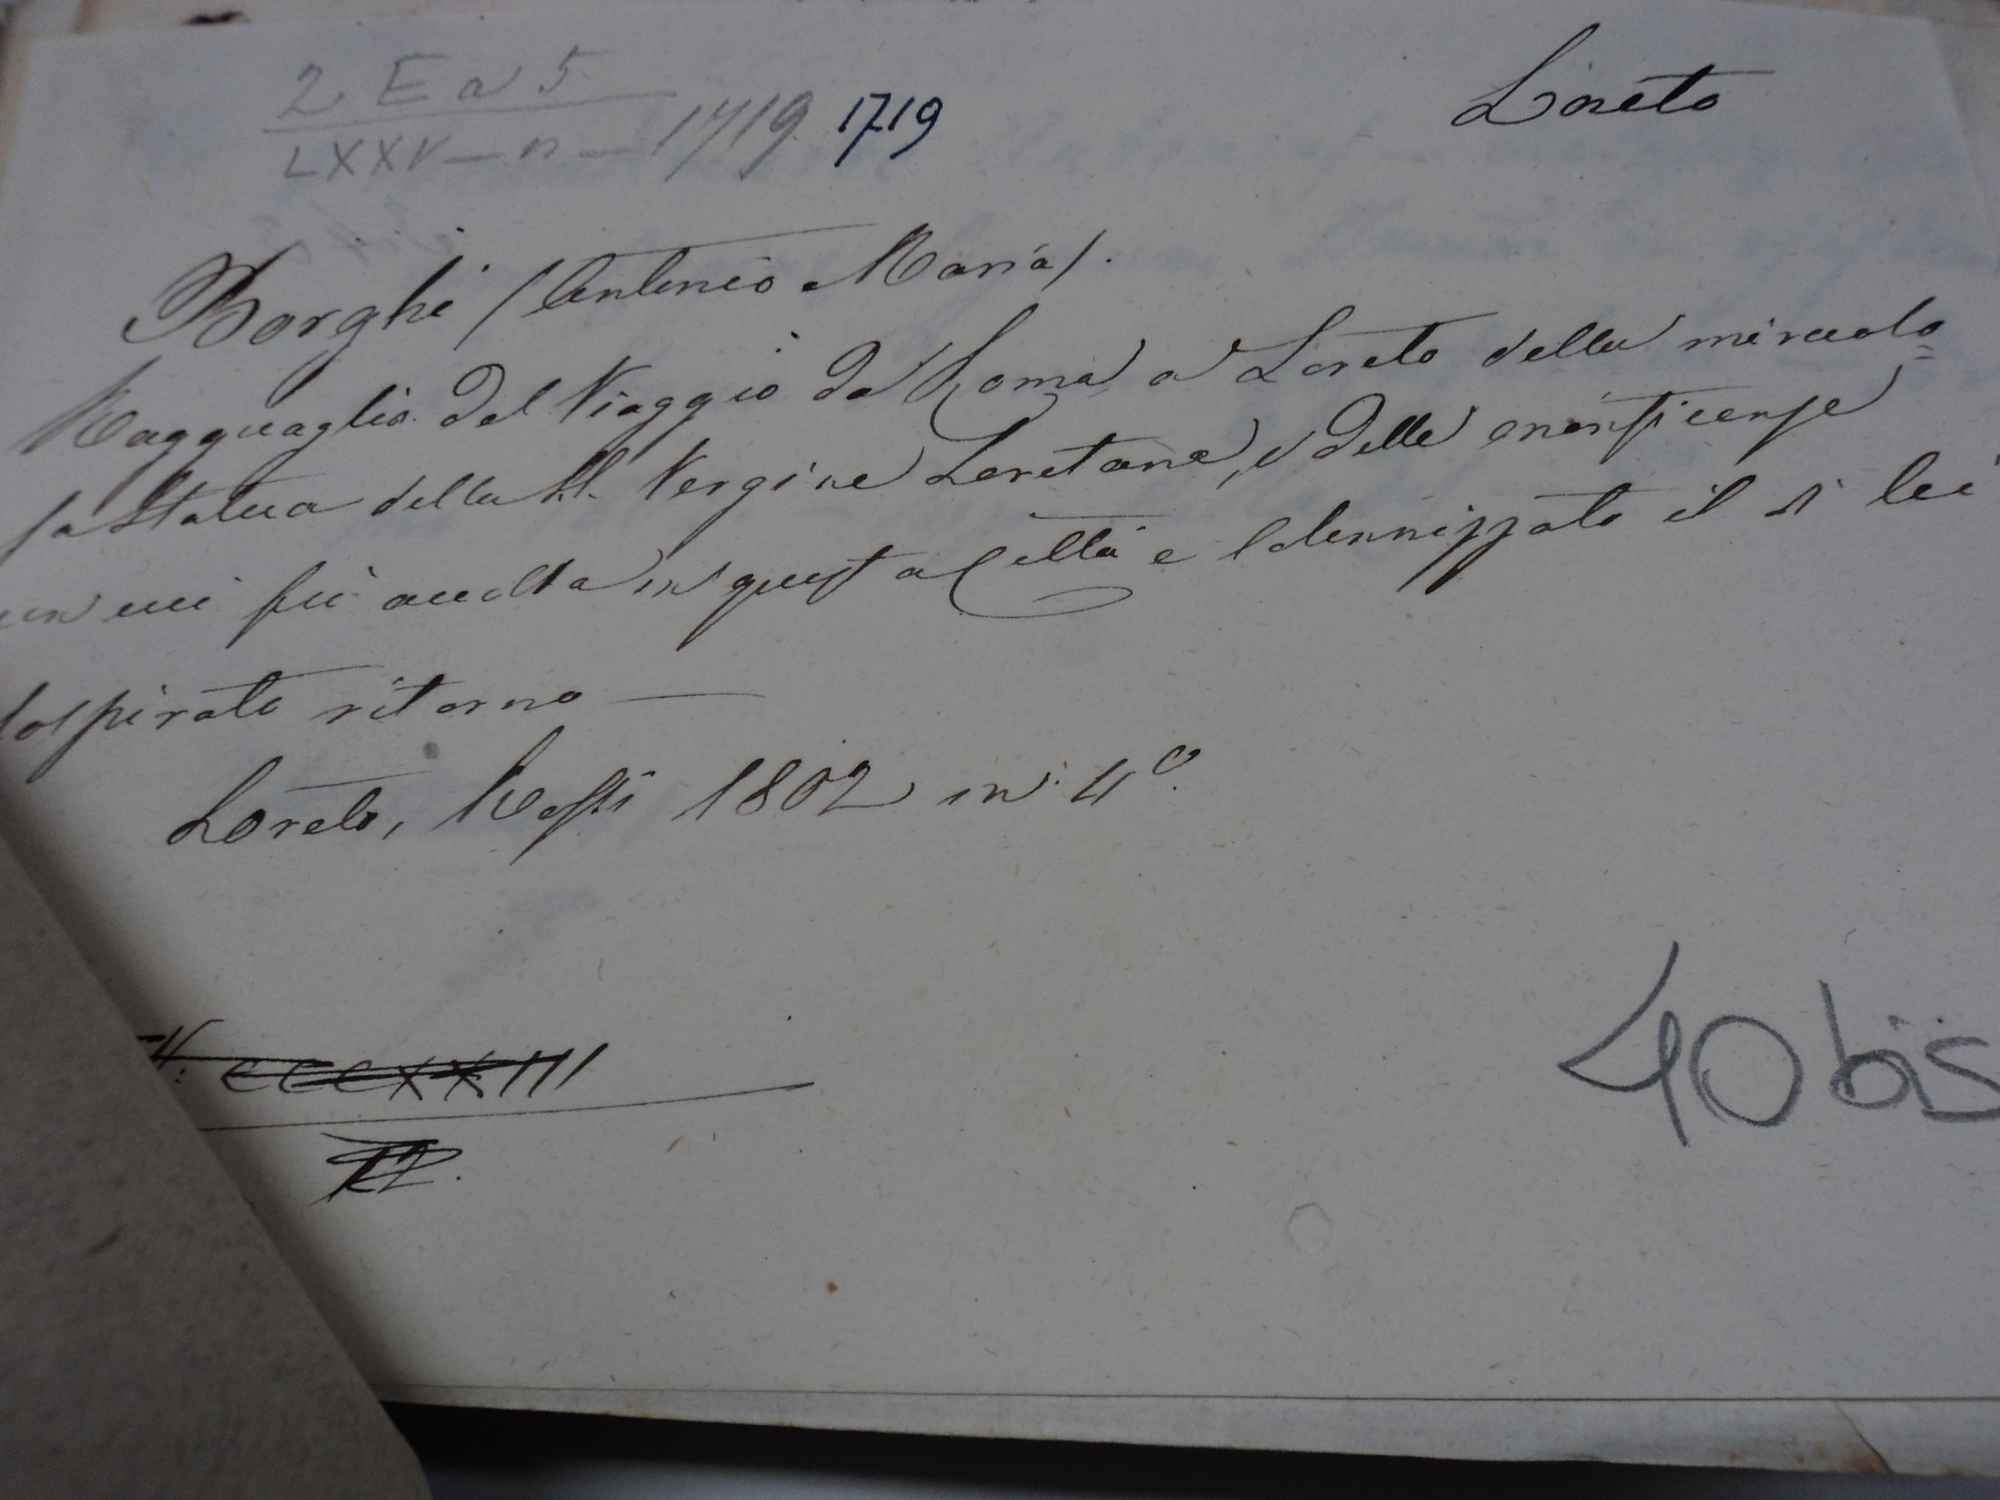 2 E a 5
LXXV - n - 1719 1719
Loreto
Borghi (Antonio Maria).
Ragguaglio del Viaggio da Roma a Loreto della miracolo=
sa Statua della SS. Vergine Loretana, e delle munificenze
con cui fu accolta in questa Città e solennizzato il di lei
sospirato ritorno —
Loreto, Rossi 1802 in 4º.
CCCXXIII
12.
40 bis